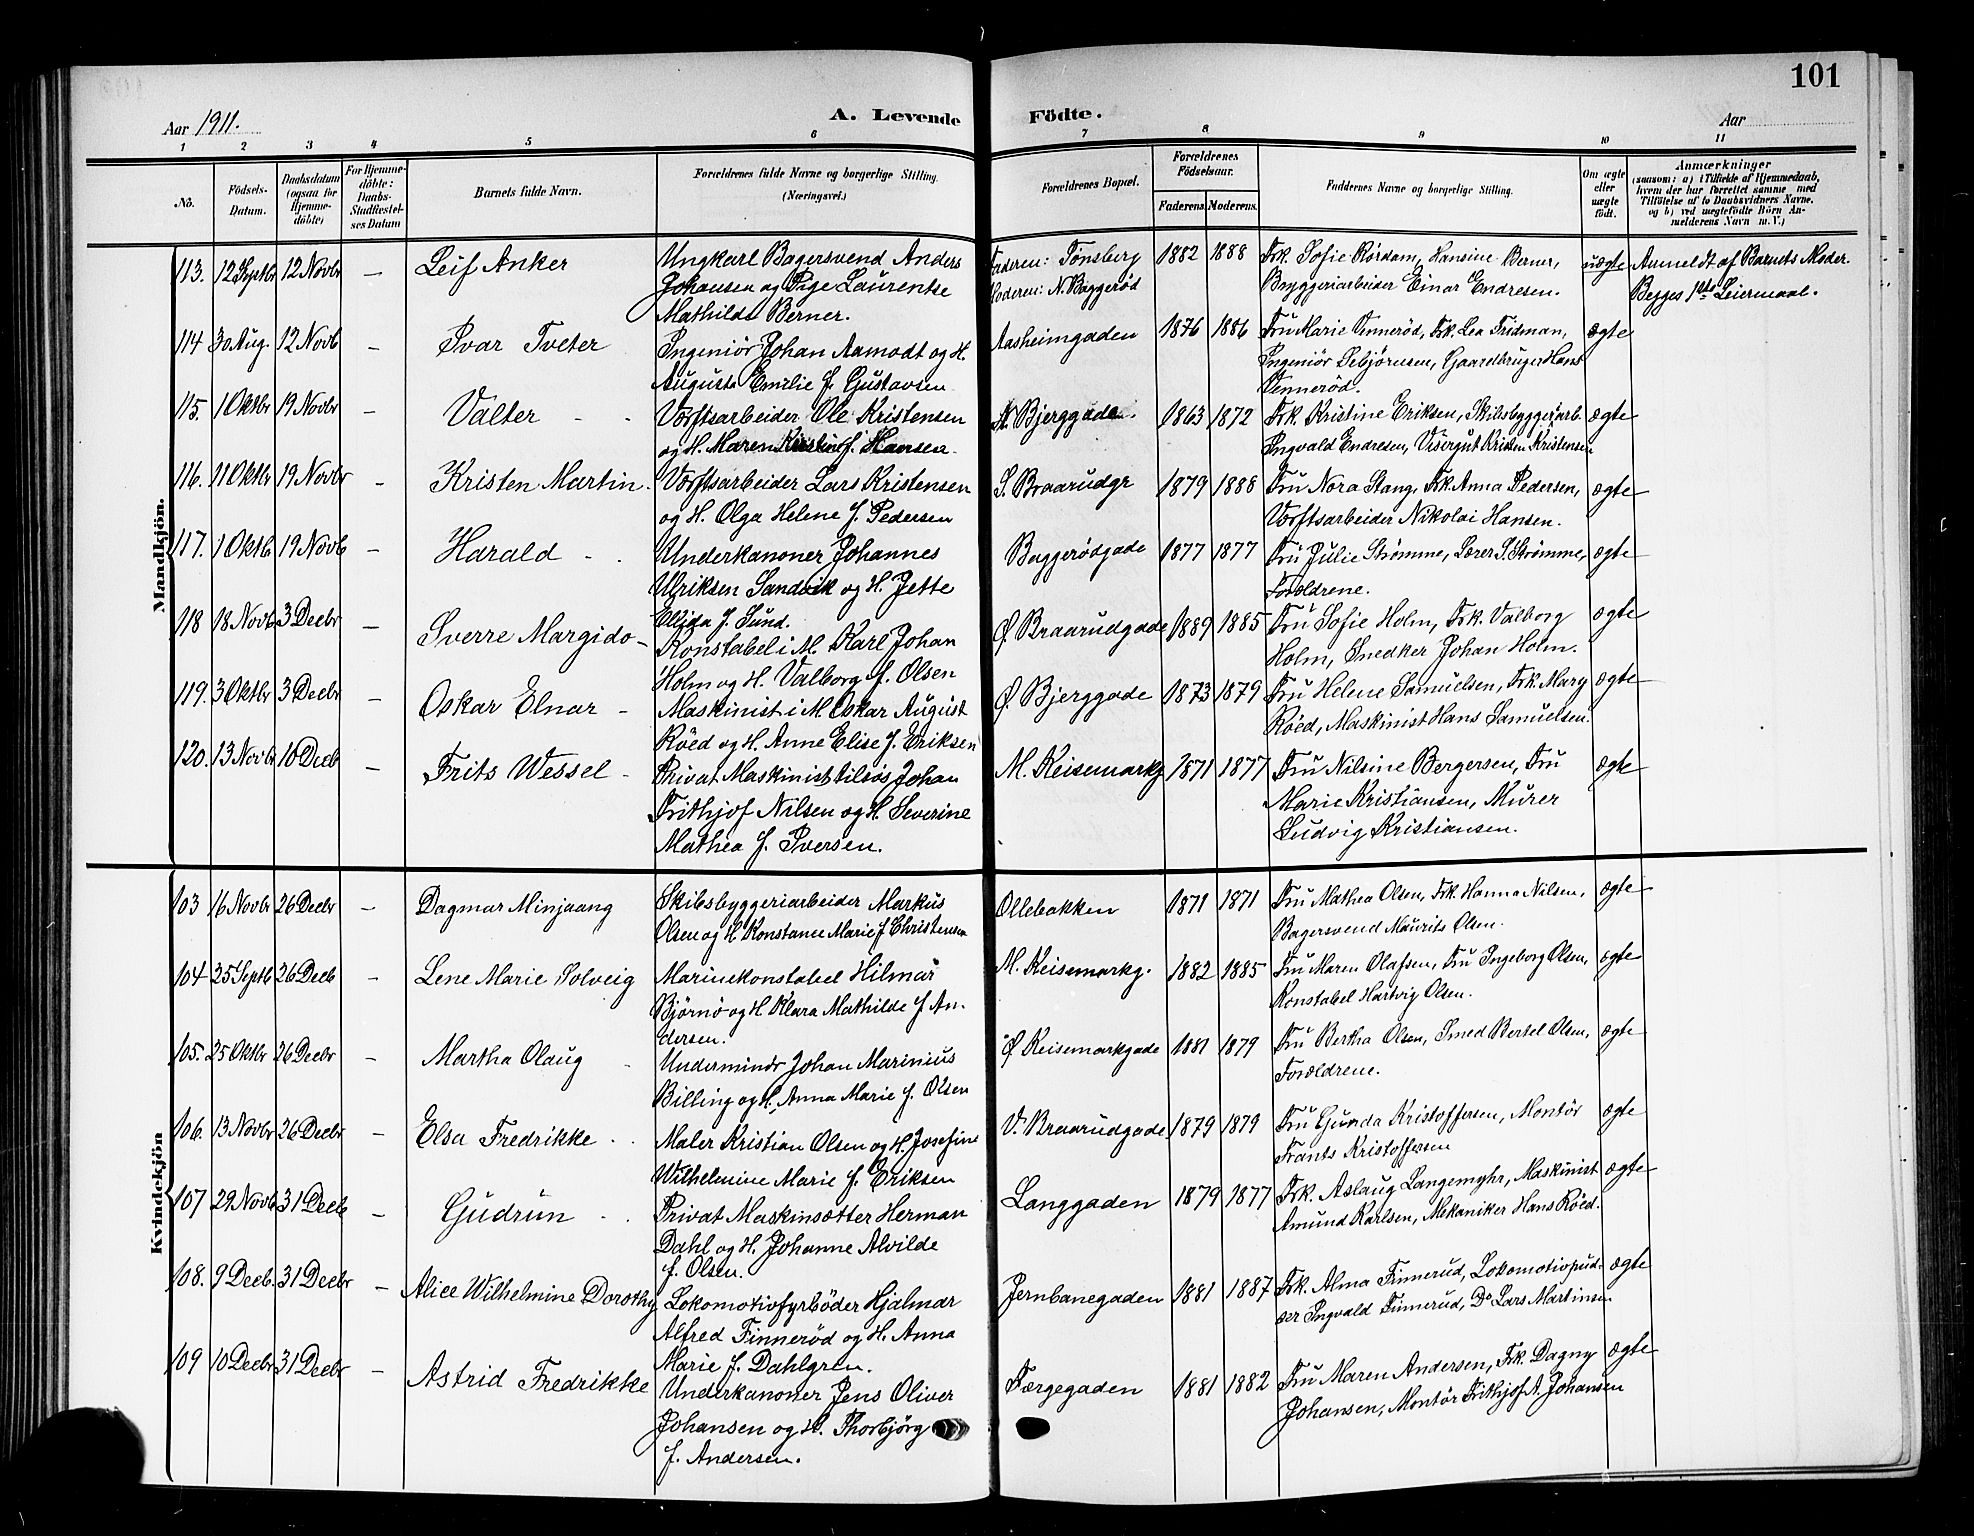 101
Aar 1911.
A. Levende Födte.
Aar
1 2 3 4 5 6 7 8 9 10 11
No.
Födsels-Datum.
Daabsdatum (ogsaa for Hjemme-döbte)
For Hjemme-döbte: Daabs-Stadfæstel-ses Datum
Barnets fulde Navn.
Forældrenes fulde Navne og borgerlige Stilling. (Næringsvei.)
Forældrenes Bopæl.
Forældrenes Födselsaar.
Faderens. Moderens.
Faddernes Navne og borgerlige Stilling.
Om ægte eller uægte födt.
Anmærkninger
(saasom: a) i Tilfælde af Hjemmedaab,
hvem der har forrettet samme med
Tilföielse af to Daabsvidners Navne.
og b) ved uægtefödte Börn An-
melderens Navn m. V.)
Mandkjön.
113. 12 Septbr 12 Novbr — Leif Anker
Ungkarl Bagersvend Anders
Johansen og Pige Laurentse
Mathilde Berner.
Faderen: Tønsberg
Moderen: N. Baggerød
1882 1888
Frk. Sofie Rørdam, Hansine Berner,
Bryggeriarbeider Einar Endresen.
uægte
Anmeldt af Barnets Moder.
Begges 1ste Leiermaal.
114 30 Aug. 12 Novb — Ivar Tveter
Ingeniör Johan Aamodt og H.
Augusta Emilie f. Gustavsen
Aasheimgaden 1876 1886
Fru Marie Vennerød, Frk. Lea Fridman,
Ingeniör Sebjørnsen, Gaardbruger Hans
Vennerød.
ægte
115. 1 Oktbr 19 Novbr — Valter
Værftsarbeider Ole Kristensen
og H. Maren Kirstine f. Hansen.
N. Bjerggade. 1863 1872
Frk. Kristine Eriksen, Skibsbyggeriarb.
Ingvald Endresen, Visergut Kristen Kristensen
ægte
116. 11 Oktbr 19 Novbr — Kristen Martin.
Værftsarbeider Lars Kristensen
og H. Olga Helene f. Pedersen
S. Braarudgr 1879 1888
Fru Nora Stang, Frk. Anna Pedersen,
Værftsarbeider Nikolai Hansen.
ægte
117. 1 Oktb 19 Novb — Harald
Underkanoner Johannes
Ulriksen Sandvik og H. Jette
Elida f. Lund.
Baggerødgade 1877 1877
Fru Julie Strømme, Lærer S. Strømme,
Forældrene.
ægte
118 18 Novb. 3 Decbr — Sverre Margido
Konstabel i M. Karl Johan
Holm og H. Valborg f. Olsen
Ø. Braarudgade 1889 1885
Fru Sofie Holm, Frk. Valborg
Holm, Snedker Johan Holm.
ægte
119. 3 Oktbr 3 Decbr — Oskar Elnar
Maskinist i M. Oskar August
Röed og H. Anne Elise f. Eriksen
Ø. Bjerggade 1873 1879
Fru Helene Samuelsen, Frk. Mary
Röed, Maskinist Hans Samuelsen.
ægte
120. 13 Novbr 10 Decb — Frits Wessel
Privat Maskinist tilsøs Johan
Frithjof Nilsen og H. Severine
Mathea f. Iversen.
M. Keisemarkg 1871 1877
Fru Nilsine Bergersen, Fru
Marie Kristiansen, Murer
Ludvig Kristiansen.
ægte
Kvindekjön
103 16 Novbr 26 Decbr — Dagmar Minjaang
Skibsbyggeriarbeider Markus
Olsen og H. Konstance Marie f. Christensen
Ollebakken 1871 1871
Fru Mathea Olsen, Frk. Hanna Nilsen,
Bagersvend Maurits Olsen.
ægte
104 25 Septb 26 Decb — Lene Marie Solveig
Marinekonstabel Hilmar
Bjørnö og H Klara Mathilde f An-
dersen.
M. Keisemarkg. 1882 1885
Fru Maren Olafsen, Fru Ingeborg Olsen,
Konstabel Hartvig Olsen.
ægte
105. 25 Oktbr 26 Decbr — Martha Olaug
Undermindr Johan Marinius
Billing og H. Anna Marie f. Olsen
Ø Keisemarkgade 1881 1879
Fru Bertha Olsen, Smed Bertel Olsen,
Forældrene.
ægte
106. 13 Novbr 26 Decbr — Elsa Fredrikke
Maler Kristian Olsen og H. Josefine
Wilhelmine Marie f. Eriksen
V. Braarudgade 1879 1879
Fru Gunda Kristoffersen, Montör
Frants Kristoffersen
ægte
107 29 Novb 31 Decb — Gudrun
Privat Maskinsætter Herman
Dahl og H. Johanne Alvilde
f. Olsen.
Langgaden 1879 1877
Frk. Aslaug Langemyhr, Maskinist
Amund Karlsen, Mekaniker Hans Röed.
ægte
108. 9 Decb. 31 Decbr — Alice Wilhelmine Dorothy
Lokomotivfyrbøder Hjalmar
Alfred Finnerød og H. Anna
Marie f. Dahlgren.
Jernbanegaden 1881 1887
Frk. Alma Finnerud, Lokomotivpud-
ser Ingvald Finnerud, Do Lars Martinsen
ægte
109 10 Decbr 31 Decbr — Astrid Fredrikke
Underkanoner Jens Oliver
Johansen og H. Thorbjörg
f. Andersen.
Færgegaden 1881 1882
Fru Maren Andersen, Frk. Dagny
Johansen, Montör Frithjof A. Johansen
ægte